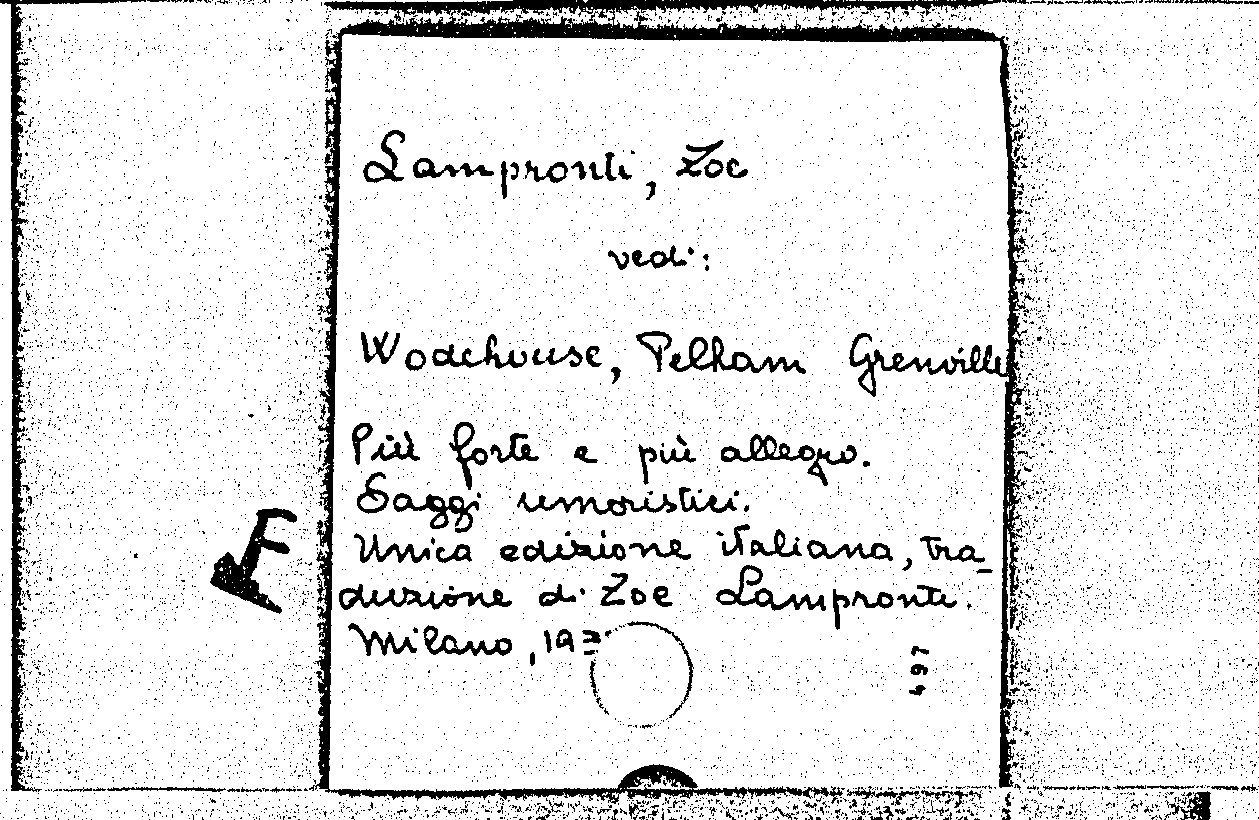 Lampronti, Zoe
vedi:
Wodehouse, Pelham Grenville
Più forte e più allegro.
Saggi umoristici.
Unica edizione italiana, tra_
duzione di Zoe Lampronti.
Milano,
497
F